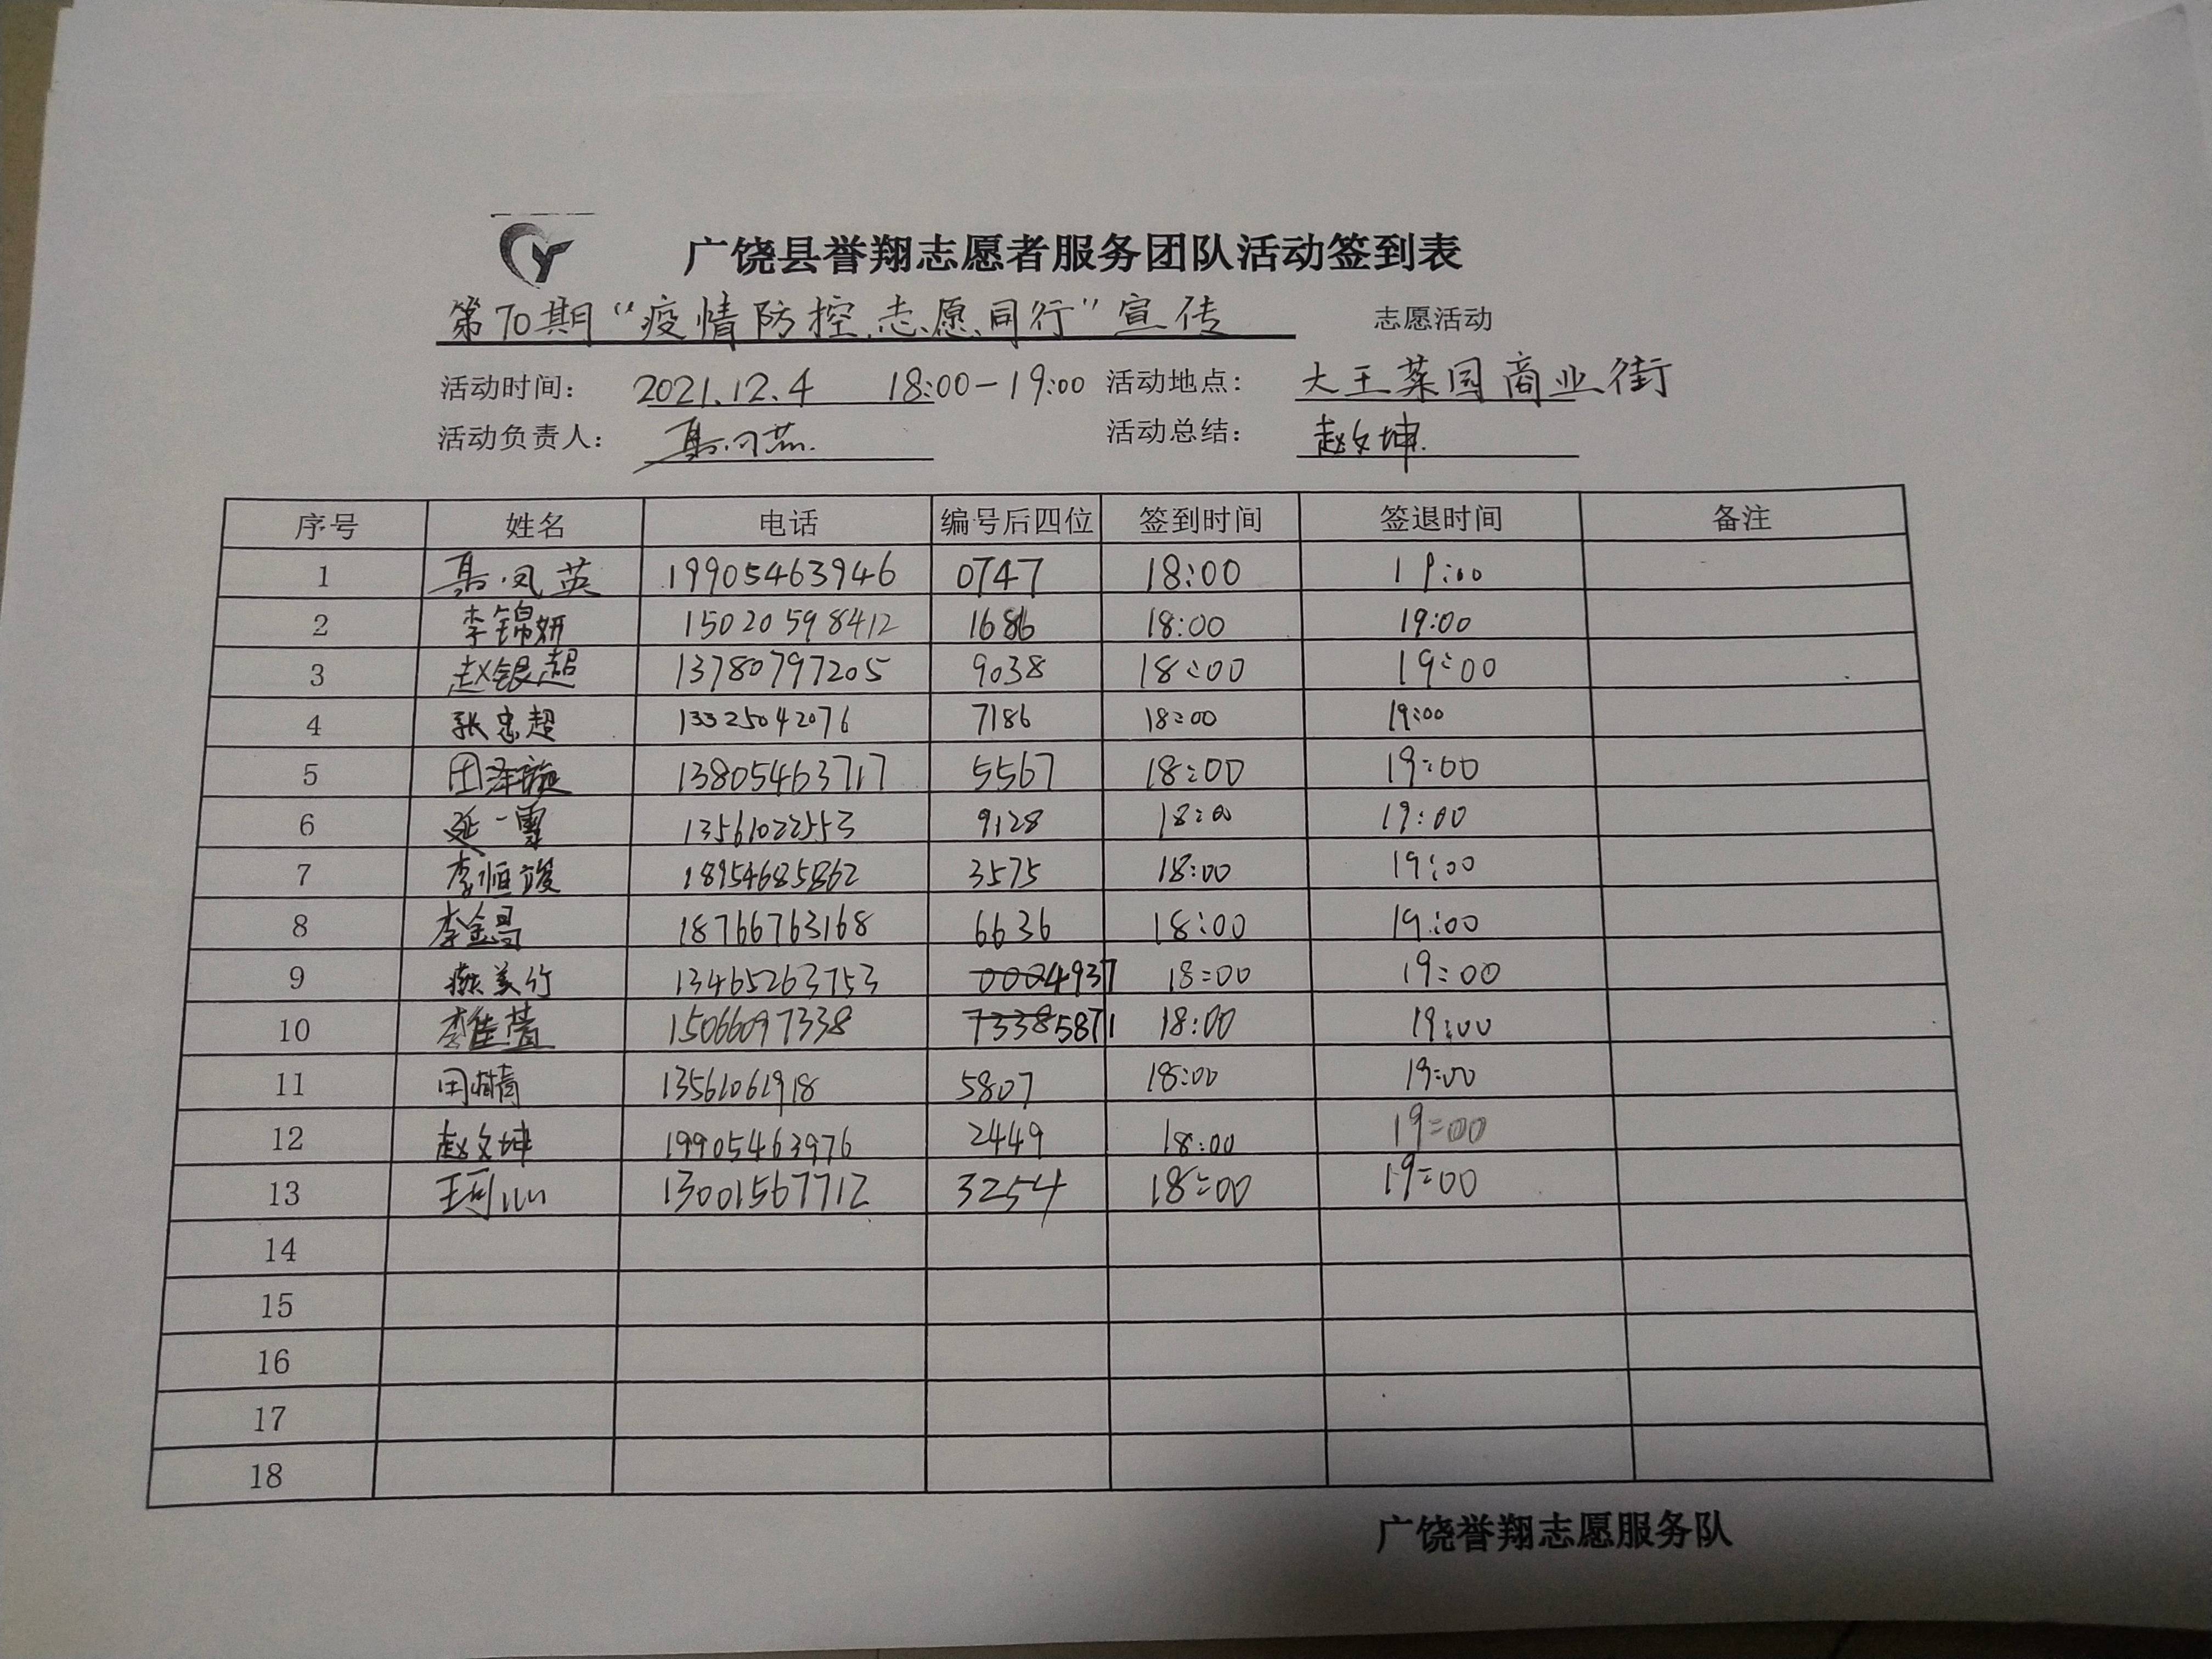 广饶县誉翔志愿者服务团队活动签到表
第70期“疫情防控.志愿同行”宣传 志愿活动
活动时间： 2021.12.4 18:00-19:00 活动地点： 大王菜园商业街
活动负责人： 活动总结： 赵文坤
序号 姓名 电话 编号后四位 签到时间 签退时间 备注
1 19905463946 0747 18:00 19:00
2 李锦妍 15020598412 1686 18:00 19:00
3 赵银超 13780797205 9038 18:00 19:00
4 张忠超 13325042076 7186 18:00 19:00
5 田泽璇 13805463717 5567 18:00 19:00
6 延一雪 13561022553 9128 18:00 19:00
7 李恒竣 18954685862 3575 18:00 19:00
8 李金昌 18766763168 6636 18:00 19:00
9 燕美竹 13465263753 0002 4937 18:00 19:00
10 李佳萱 15066097338 7338 5871 18:00 19:00
11 田婧 13561061918 5807 18:00 19:00
12 赵文坤 19905463976 2449 18:00 19:00
13 王珂 13001567712 3254 18:00 19:00
14
15
16
17
18
广饶誉翔志愿服务队